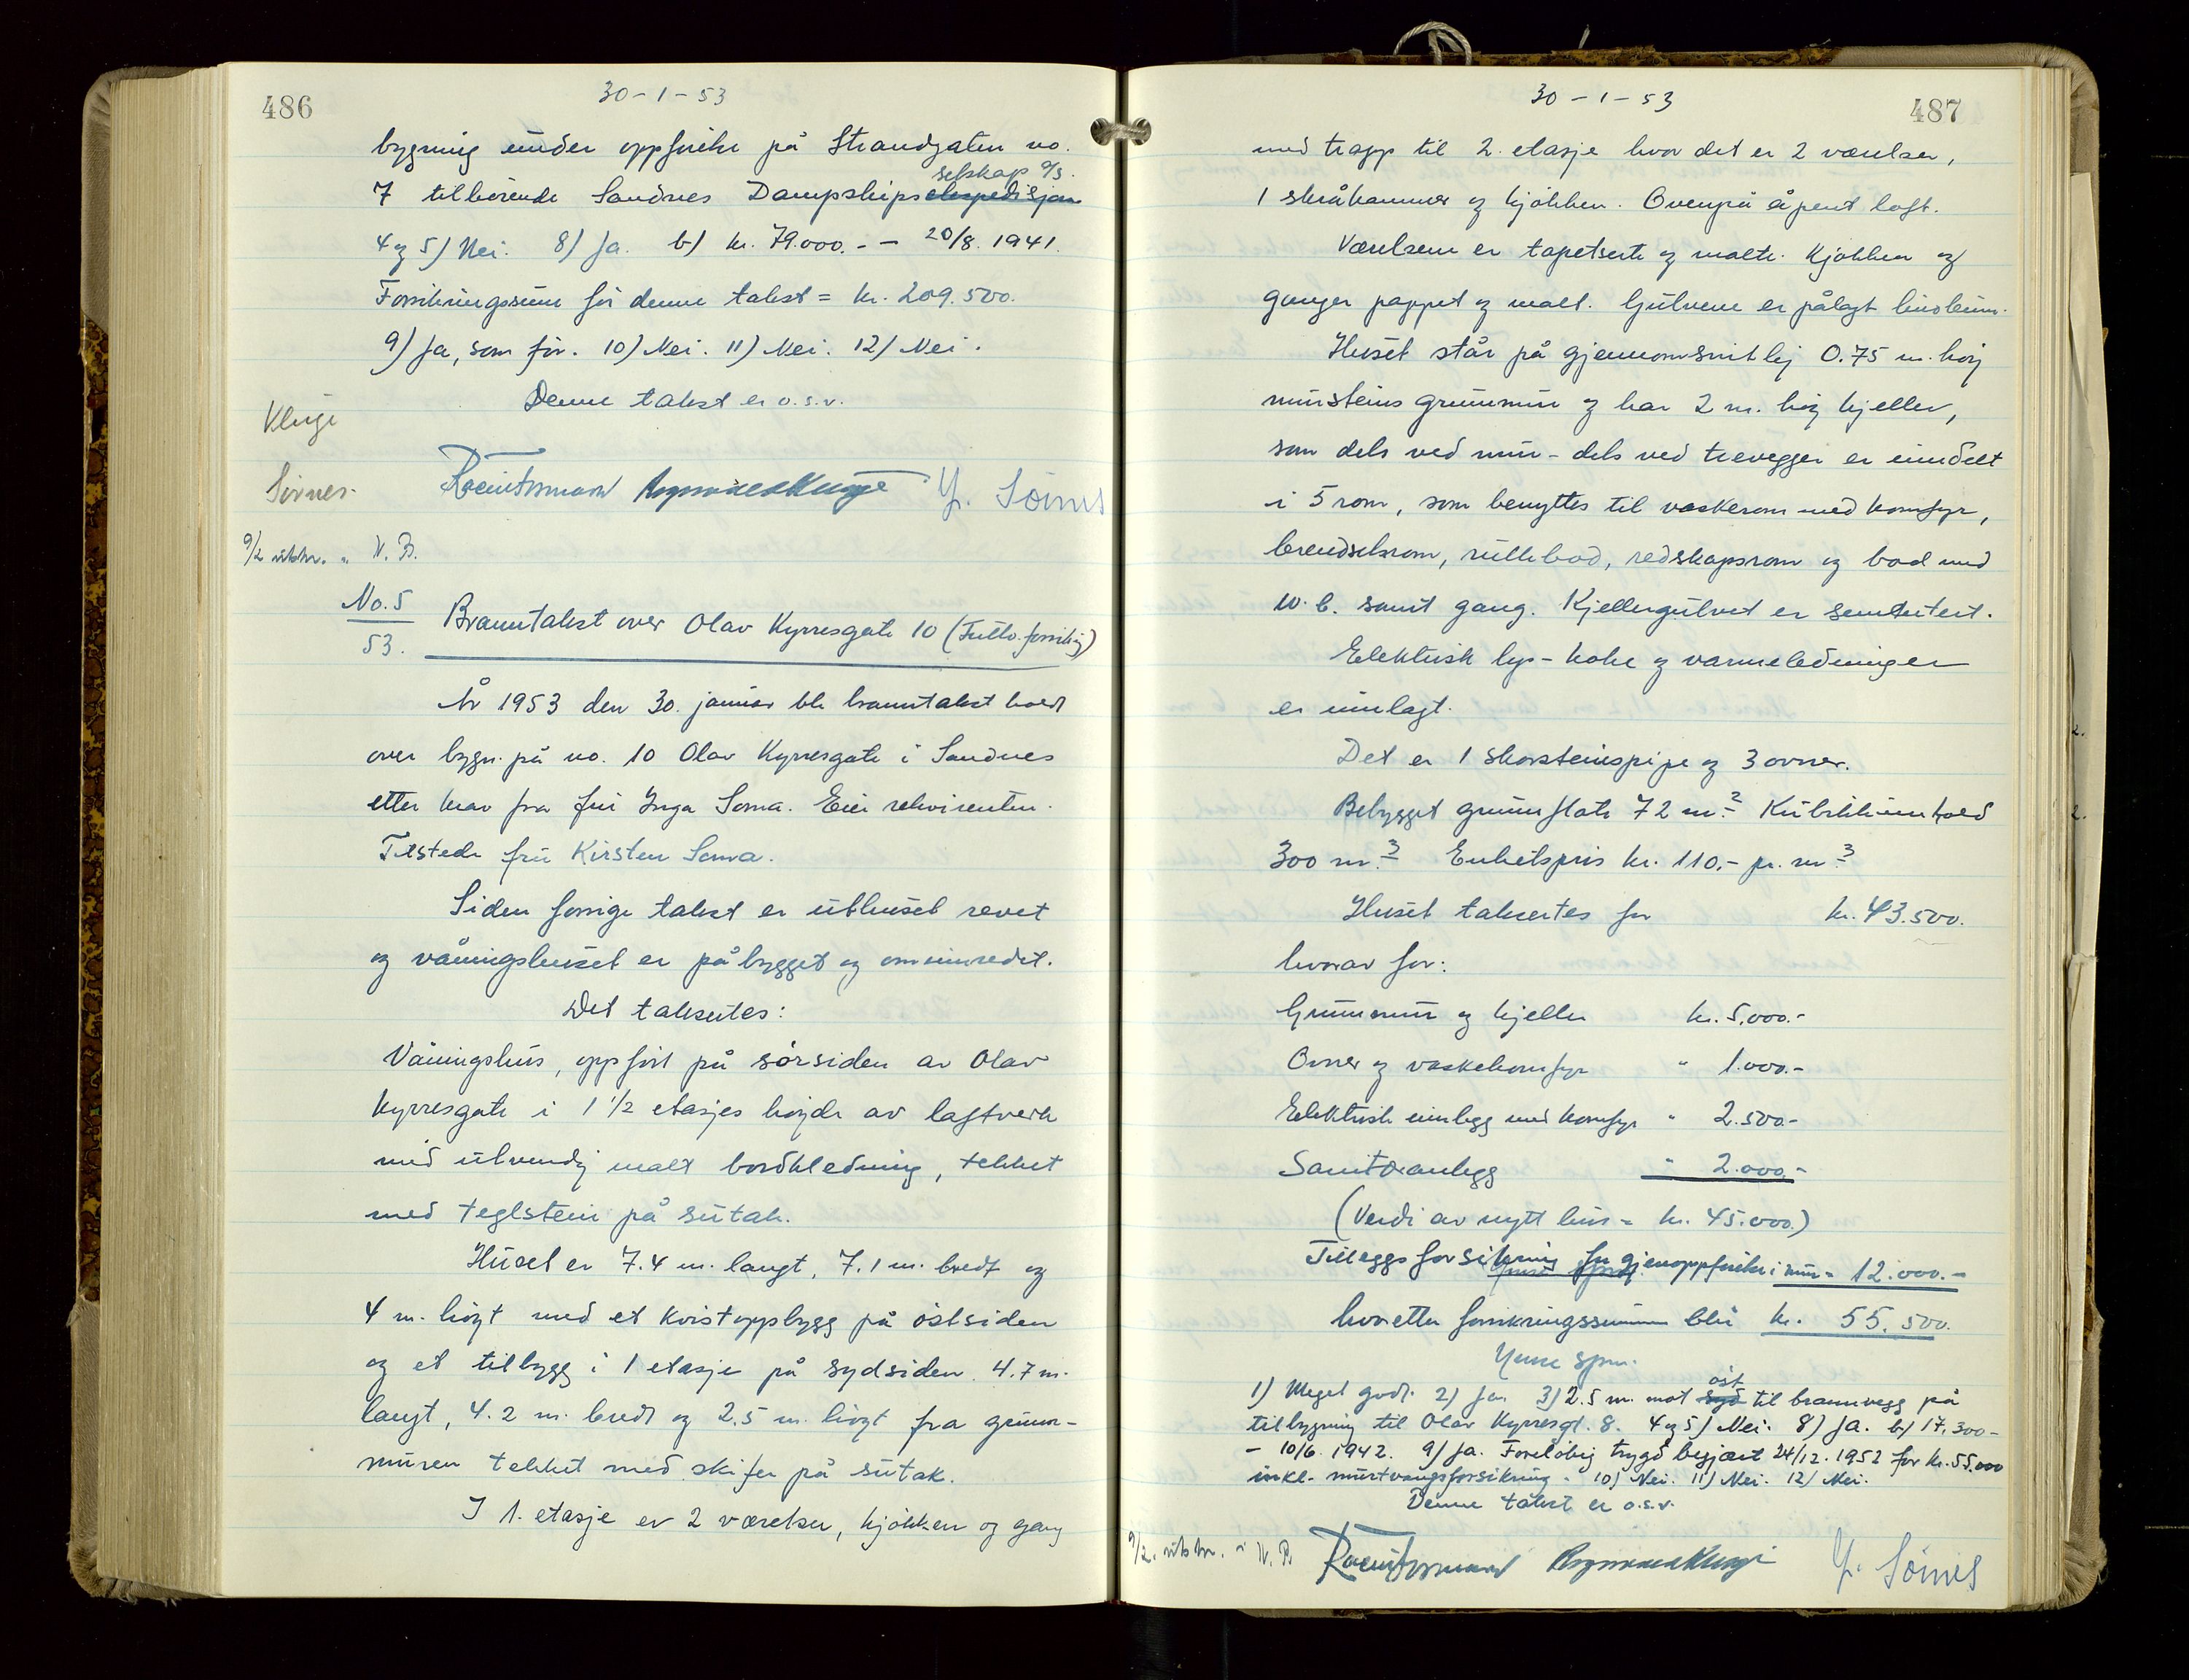 486
30-1-53
bygning under oppførelse på Strandgaten no.
selskap A/S.
7 tilhørende Sandnes Dampskipsekspedisjon
4 og 5) Nei. 8) Ja. b) kr. 79.000.- - 20/8. 1941.
Forsikringssum før denne takst = kr. 209.500.
9) Ja, som før. 10) Nei. 11) Nei. 12) Nei.
Denne takst er o.s.v.
Kluge
Sørnes.
Y. Sömes
9/2 utskr. i N. B.
No. 5
53.
Branntakst over Olav Kyrresgate 10 (Fullv. forsikring)
År 1953 den 30. januar ble branntakst holdt
over bygn. på no. 10 Olav Kyrresgate i Sandnes
etter krav fra fru Inga Soma. Eier rekvirenten.
Tilstede fru Kirsten Soma.
Siden forrige takst er uthuset revet
og våningshuset er påbygget og ominnredet.
Det takseres:
Våningshus, oppført på sørsiden av Olav
Kyrresgate i 1 1/2 etasjes høyde av laftverk
med utvendig malt bordkledning, tekket
med teglstein på sutak.
Huset er 7.4 m. langt, 7.1 m. bredt og
4 m. høyt med et kvistoppbygg på østsiden
og et tilbygg i 1 etasje på sydsiden 4.7 m.
langt, 4.2 m. bredt og 2.5 m. høyt fra grunn-
muren tekket med skifer på sutak.
I 1. etasje er 2 værelser, kjøkken og gang
30-1-53
487
med trapp til 2. etasje hvor det er 2 værelser,
1 skråkammer og kjøkken. Ovenpå åpent loft.
Værelsene er tapetserte og malte. Kjøkken og
ganger pappet og malt. Gulvene er pålagt linoleum.
Huset står på gjennomsnitlig 0.75 m. høy
mursteins grunnmur og har 2 m. høy kjeller,
som dels ved mur- dels ved trevegger er inndelt
i 5 rom, som benyttes til vaskerom med komfyr,
brendselsrom, rullebod, redskapsrom og bad med
w.c. samt gang. Kjellergulvet er sementert.
Elektrisk lys- koke og varmeledninger
er innlagt.
Det er 1 skorsteinspipe og 3 ovner.
Bebygget grunnflate 72 m.2 Kubikkinnhold
300 m.3 Enhetspris kr. 110.- pr. m3
Huset takseres for kr. 43.500.
hvorav for:
Grunnmur og kjeller kr. 5.000.-
Ovner og vaskekomfyr " 1.000.-
Elektrisk innlegg med komfyr " 2.500.-
Sanitæranlegg " 2.000.-
(Verdi av nytt hus = kr. 45.000.)
Tilleggsforsikring for gjenoppførelse i mur = 12.000.-
hvoretter forsikringssummen blir kr. 55.500.
øst
1) Meget godt. 2) Ja. 3) 2.5 m. mot syd til brannvegg på
tilbygning til Olav Kyrresgt. 8. 4 og 5) Nei. 8) Ja. b) 17.300-
- 10/6. 1942. 9) Ja. Foreløbig trygd begjært 24/12. 1952 for kr. 55.000
inkl. murtvangsforsikring. 10) Nei. 11) Nei. 12) Nei.
Denne takst er o.s.v.
9/2. utskr. i N. B.
Y. Sömes